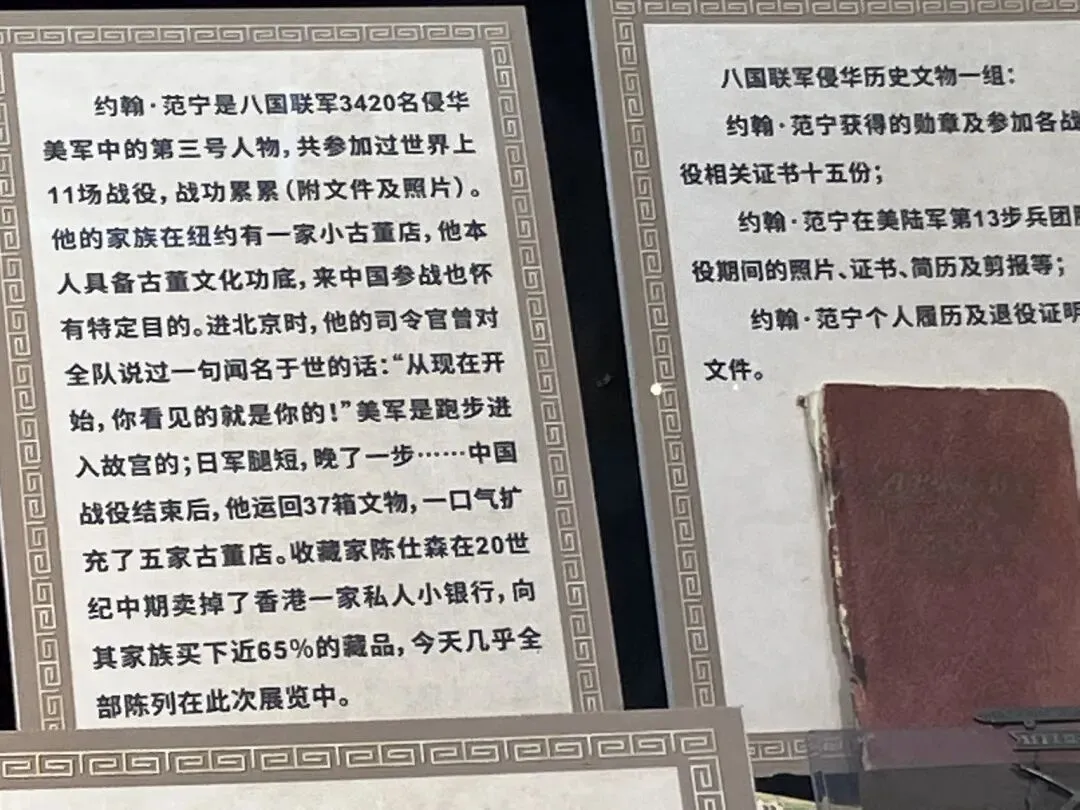 约翰·范宁是八国联军3420名侵华
美军中的第三号人物，共参加过世界上
11场战役，战功累累（附文件及照片）。
他的家族在纽约有一家小古董店，他本
人具备古董文化功底，来中国参战也怀
有特定目的。进北京时，他的司令官曾对
全队说过一句闻名于世的话：“从现在开
始，你看见的就是你的！”美军是跑步进
入故宫的；日军腿短，晚了一步……中国
战役结束后，他运回37箱文物，一口气扩
充了五家古董店。收藏家陈仕森在20世
纪中期卖掉了香港一家私人小银行，向
其家族买下近65%的藏品，今天几乎全
部陈列在此次展览中。
八国联军侵华历史文物一组：
约翰·范宁获得的勋章及参加各战
役相关证书十五份；
约翰·范宁在美陆军第13步兵团服
役期间的照片、证书、简历及剪报等；
约翰·范宁个人履历及退役证明
文件。